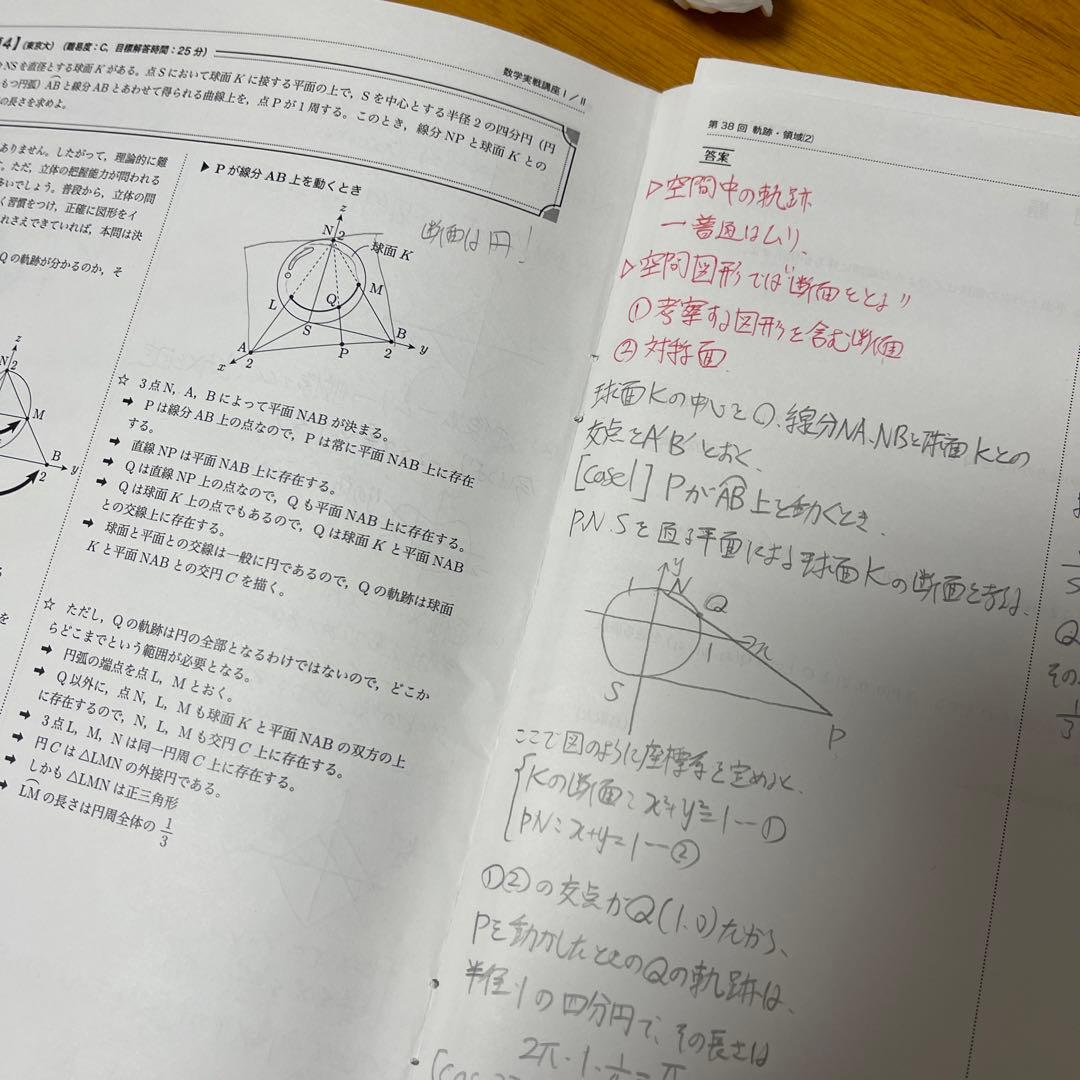 4】(東京大) (難易度:C, 目標解答時間:25分)
数学実戦講座Ⅰ/Ⅱ
NSを直径とする球面Kがある。点Sにおいて球面Kに接する平面の上で,Sを中心とする半径2の四分円(円
もつ円弧)ABと線分ABとあわせて得られる曲線上を,点Pが1周する。このとき,線分NPと球面Kとの
の長さを求めよ。
ありません。したがって,理論的に難
ただ,立体の把握能力が問われる
いでしょう。普段から,立体の問
く習慣をつけ,正確に図形をイ
れさえできていれば,本問は決
Qの軌跡が分かるのか,そ
N 2
M
B
y
2
を
▶ Pが線分AB上を動くとき
断面は円!
z
N 2
球面K
L
Q
M
S
A
B
2
P
2
y
x
☆ 3点N,A,Bによって平面NABが決まる。
➡ Pは線分AB上の点なので,Pは常に平面NAB上に存在
する。
➡ 直線NPは平面NAB上に存在する。
➡ Qは直線NP上の点なので,Qも平面NAB上に存在する。
➡ Qは球面K上の点でもあるので,Qは球面Kと平面NAB
との交線上に存在する。
➡ 球面と平面との交線は一般に円であるので,Qの軌跡は球面
Kと平面NABとの交円Cを描く。
☆ ただし,Qの軌跡は円の全部となるわけではないので,どこか
らどこまでという範囲が必要となる。
➡ 円弧の端点を点L,Mとおく。
➡ Q以外に,点N,L,Mも球面Kと平面NABの双方の上
に存在するので,N,L,Mも交円C上に存在する。
➡ 3点L,M,Nは同一円周C上に存在する。
➡ 円Cは△LMNの外接円である。
➡ しかも△LMNは正三角形
➡ LMの長さは円周全体の1/3
第38回 軌跡・領域(2)
答案
▷空間中の軌跡
→普通はムリ.
▷空間図形では"断面をとよ"
①考察する図形を含む断面
②対称面
球面Kの中心をO、線分NA、NBと球面Kとの
交点をA'B'とおく、
[case1] PがAB上を動くとき、
P.N.Sを通る平面による球面Kの断面を考えれば、
y
1
N
Q
1
2
x
S
P
ここで図のように座標系を定めると、
Kの断面:x²+y²=1―①
PN:x+y=1―②
①②の交点がQ(1.0)だから、
Pを動かしたときのQの軌跡は、
半径1の四分円で、その長さは
2π・1・
[case
Q
その
1/3